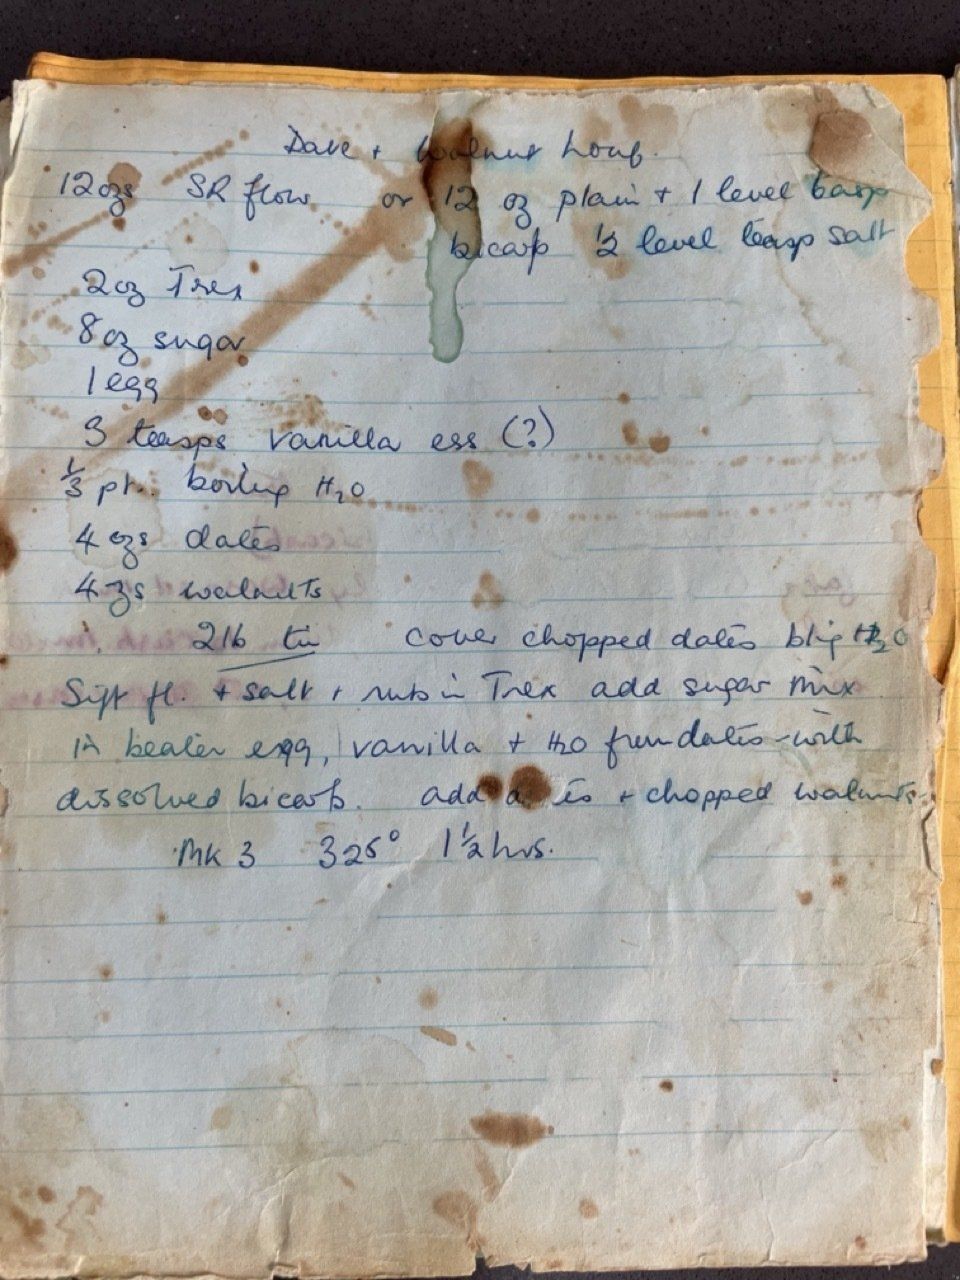 Date + Walnut Loaf.
12ozs SR flour or 12 oz plain + 1 level teasp
bicarb ½ level teasp salt
2oz Trex
8 oz sugar
1 egg
3 teasps vanilla ess (?)
⅓ pt. boiling H₂O
4 ozs dates
4 ozs walnuts
2lb tin cover chopped dates blig H₂O
Sift fl. + salt + rub in Trex add sugar mix
in beaten egg, vanilla + H₂O from dates - with
dissolved bicarb. add dates + chopped walnuts.
MK 3 325° 1½ hrs.